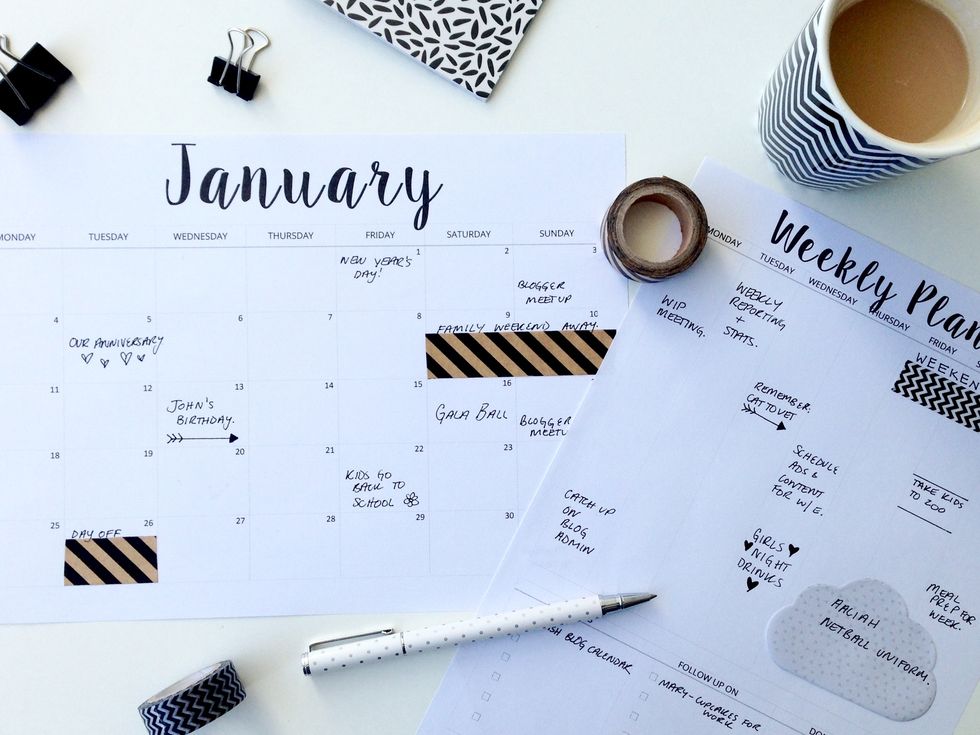 January
MONDAY TUESDAY WEDNESDAY THURSDAY FRIDAY SATURDAY SUNDAY
1 2 3
NEW YEAR'S
DAY!
BLOGGER
MEETUP
4 5 6 7 8 9 10
OUR ANNIVERSARY
FAMILY WEEKEND AWAY.
11 12 13 14 15 16
JOHN'S
BIRTHDAY.
GALA BALL
BLOGGER
MEETU
18 19 20 21 22 23
KIDS GO
BACK TO
SCHOOL
25 26 27 28 29 30
DAY OFF
Weekly Plan
MONDAY TUESDAY WEDNESDAY THURSDAY FRIDAY
WIP
MEETING.
WEEKLY
REPORTING
+
STATS.
WEEKEN
REMEMBER:
CAT TO VET
SCHEDULE
ADS &
CONTENT
FOR W/E.
TAKE KIDS
TO ZOO
CATCH UP
ON
BLOG
ADMIN
GIRLS
NIGHT
DRINKS
MEAL
PREP FOR
WEEK.
AALIAH
NETBALL UNIFORM.
ISH BLOG CALENDAR
FOLLOW UP ON
MARY-CUPCAKES FOR
WORK
DO